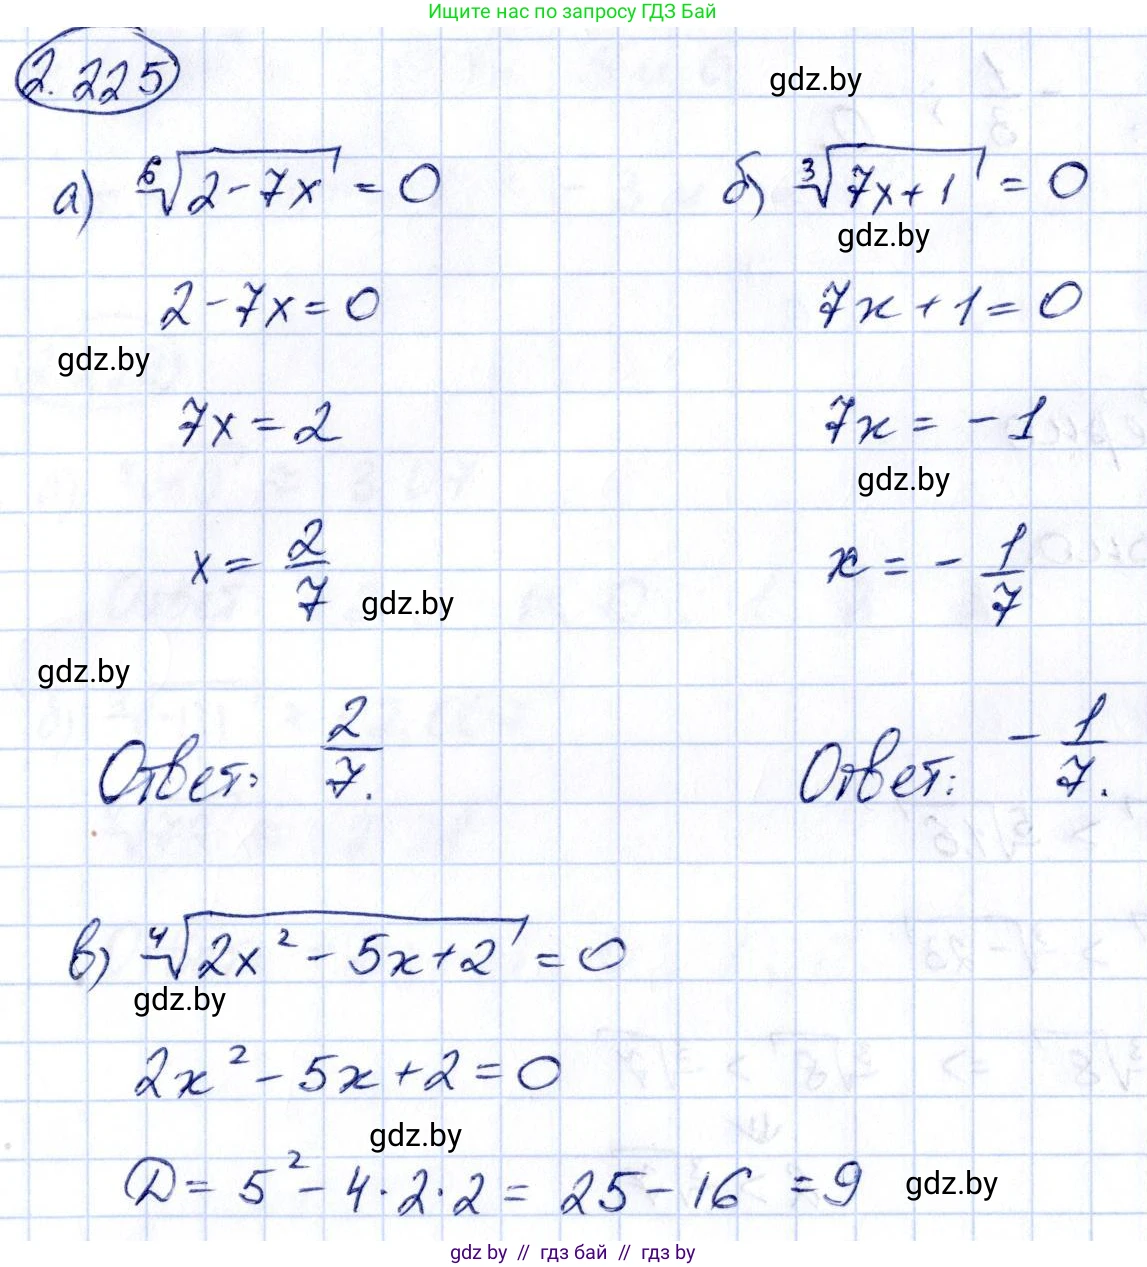 Ищите нас по запросу ГДЗ Бай
2.225
gdz.by
а) ⁶√(2-7x) = 0 б) ³√(7x+1) = 0
gdz.by
2-7x=0 7x+1=0
gdz.by
7x=2 7x= -1
gdz.by
x= 2/7 x= - 1/7
gdz.by
gdz.by
Ответ: 2/7. Ответ: - 1/7.
в) ⁴√(2x²-5x+2) =0
gdz.by
2x²-5x+2=0
gdz.by
D= 5²-4·2·2= 25-16 =9
gdz.by
gdz by // гдз бай // гдз by